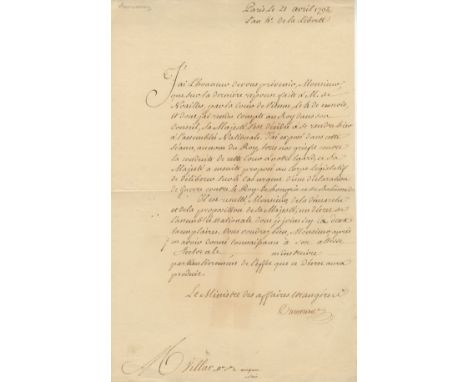 Paris Le 21 avril 1792
L'an 4e. de la Liberté
J'ai L'honneur de vous prévenir, Monsieur,
que sur la dernière réponse faite à M. de
Noailles, par la Cour de Vienne, le de ce mois,
et dont j'ai rendu compte au Roy dans son
Conseil, Sa Majesté s'est décidée à se rendre hier à
l'assemblée Nationale. J'ai exposé dans cette
séance, au nom du Roy, tous nos griefs contre
la conduite de cette Cour à notre égard, et Sa
Majesté a ensuite proposé au Corps législatif
de délibérer sur le cas urgent d'une déclaration
de Guerre contre le Roy de hongrie et de Bohême
Il est résulté, Monsieur, de la discussion
et de la proposition de Sa Majesté, un décret de
l'assemblée nationale dont je joins icy deux
exemplaires. Vous voudrez bien, Monsieur, après
en avoir donné connaissance à son altesse
Electorale, m'instruire
particulièrement de l'effet que ce décret aura
produit.
Le Ministre des affaires étrangères
Dumouriez
M Villar